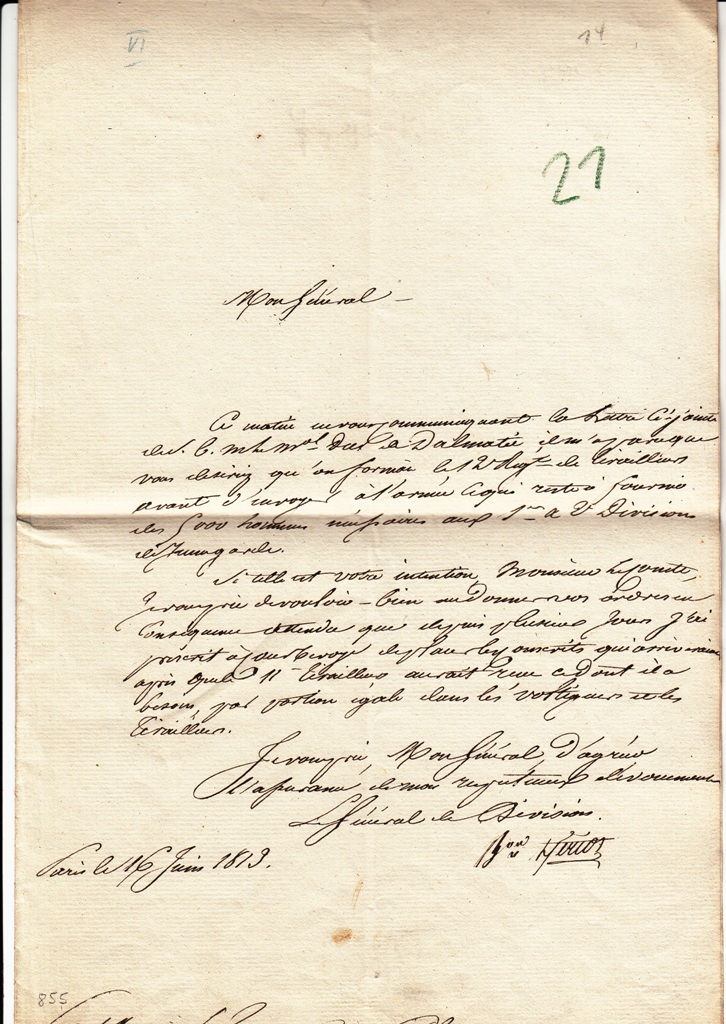 VI
14
21
Mon Général
Ce matin en vous communiquant la lettre ci-jointe
de S. E. Mr le Mal. Duc de Dalmatie il m'a paru que
vous desiriez qu'on format le 12e Regt. de Tirailleurs
avant d'envoyer à l'armée ce qui reste à fournir
des 5000 hommes nécessaires aux 1re & 2e Divisions
de Jeune garde.
Si telle est votre intention, Monsieur le Comte,
Je vous prie de vouloir bien me donner vos ordres en
Conséquence attendu que depuis plusieurs Jours J'ai
préscrit à de placer les conscrits qui arriveraient
après que le 11e Tirailleurs aurait reçu ce dont il a
besoin, par portion égale dans les Voltigeurs et les
Tirailleurs.
Je vous prie, Mon Général, d'agréer
l'assurance de mon respectueux dévouement
Le Général de Division.
Bon
Paris le 16 Juin 1813.
855